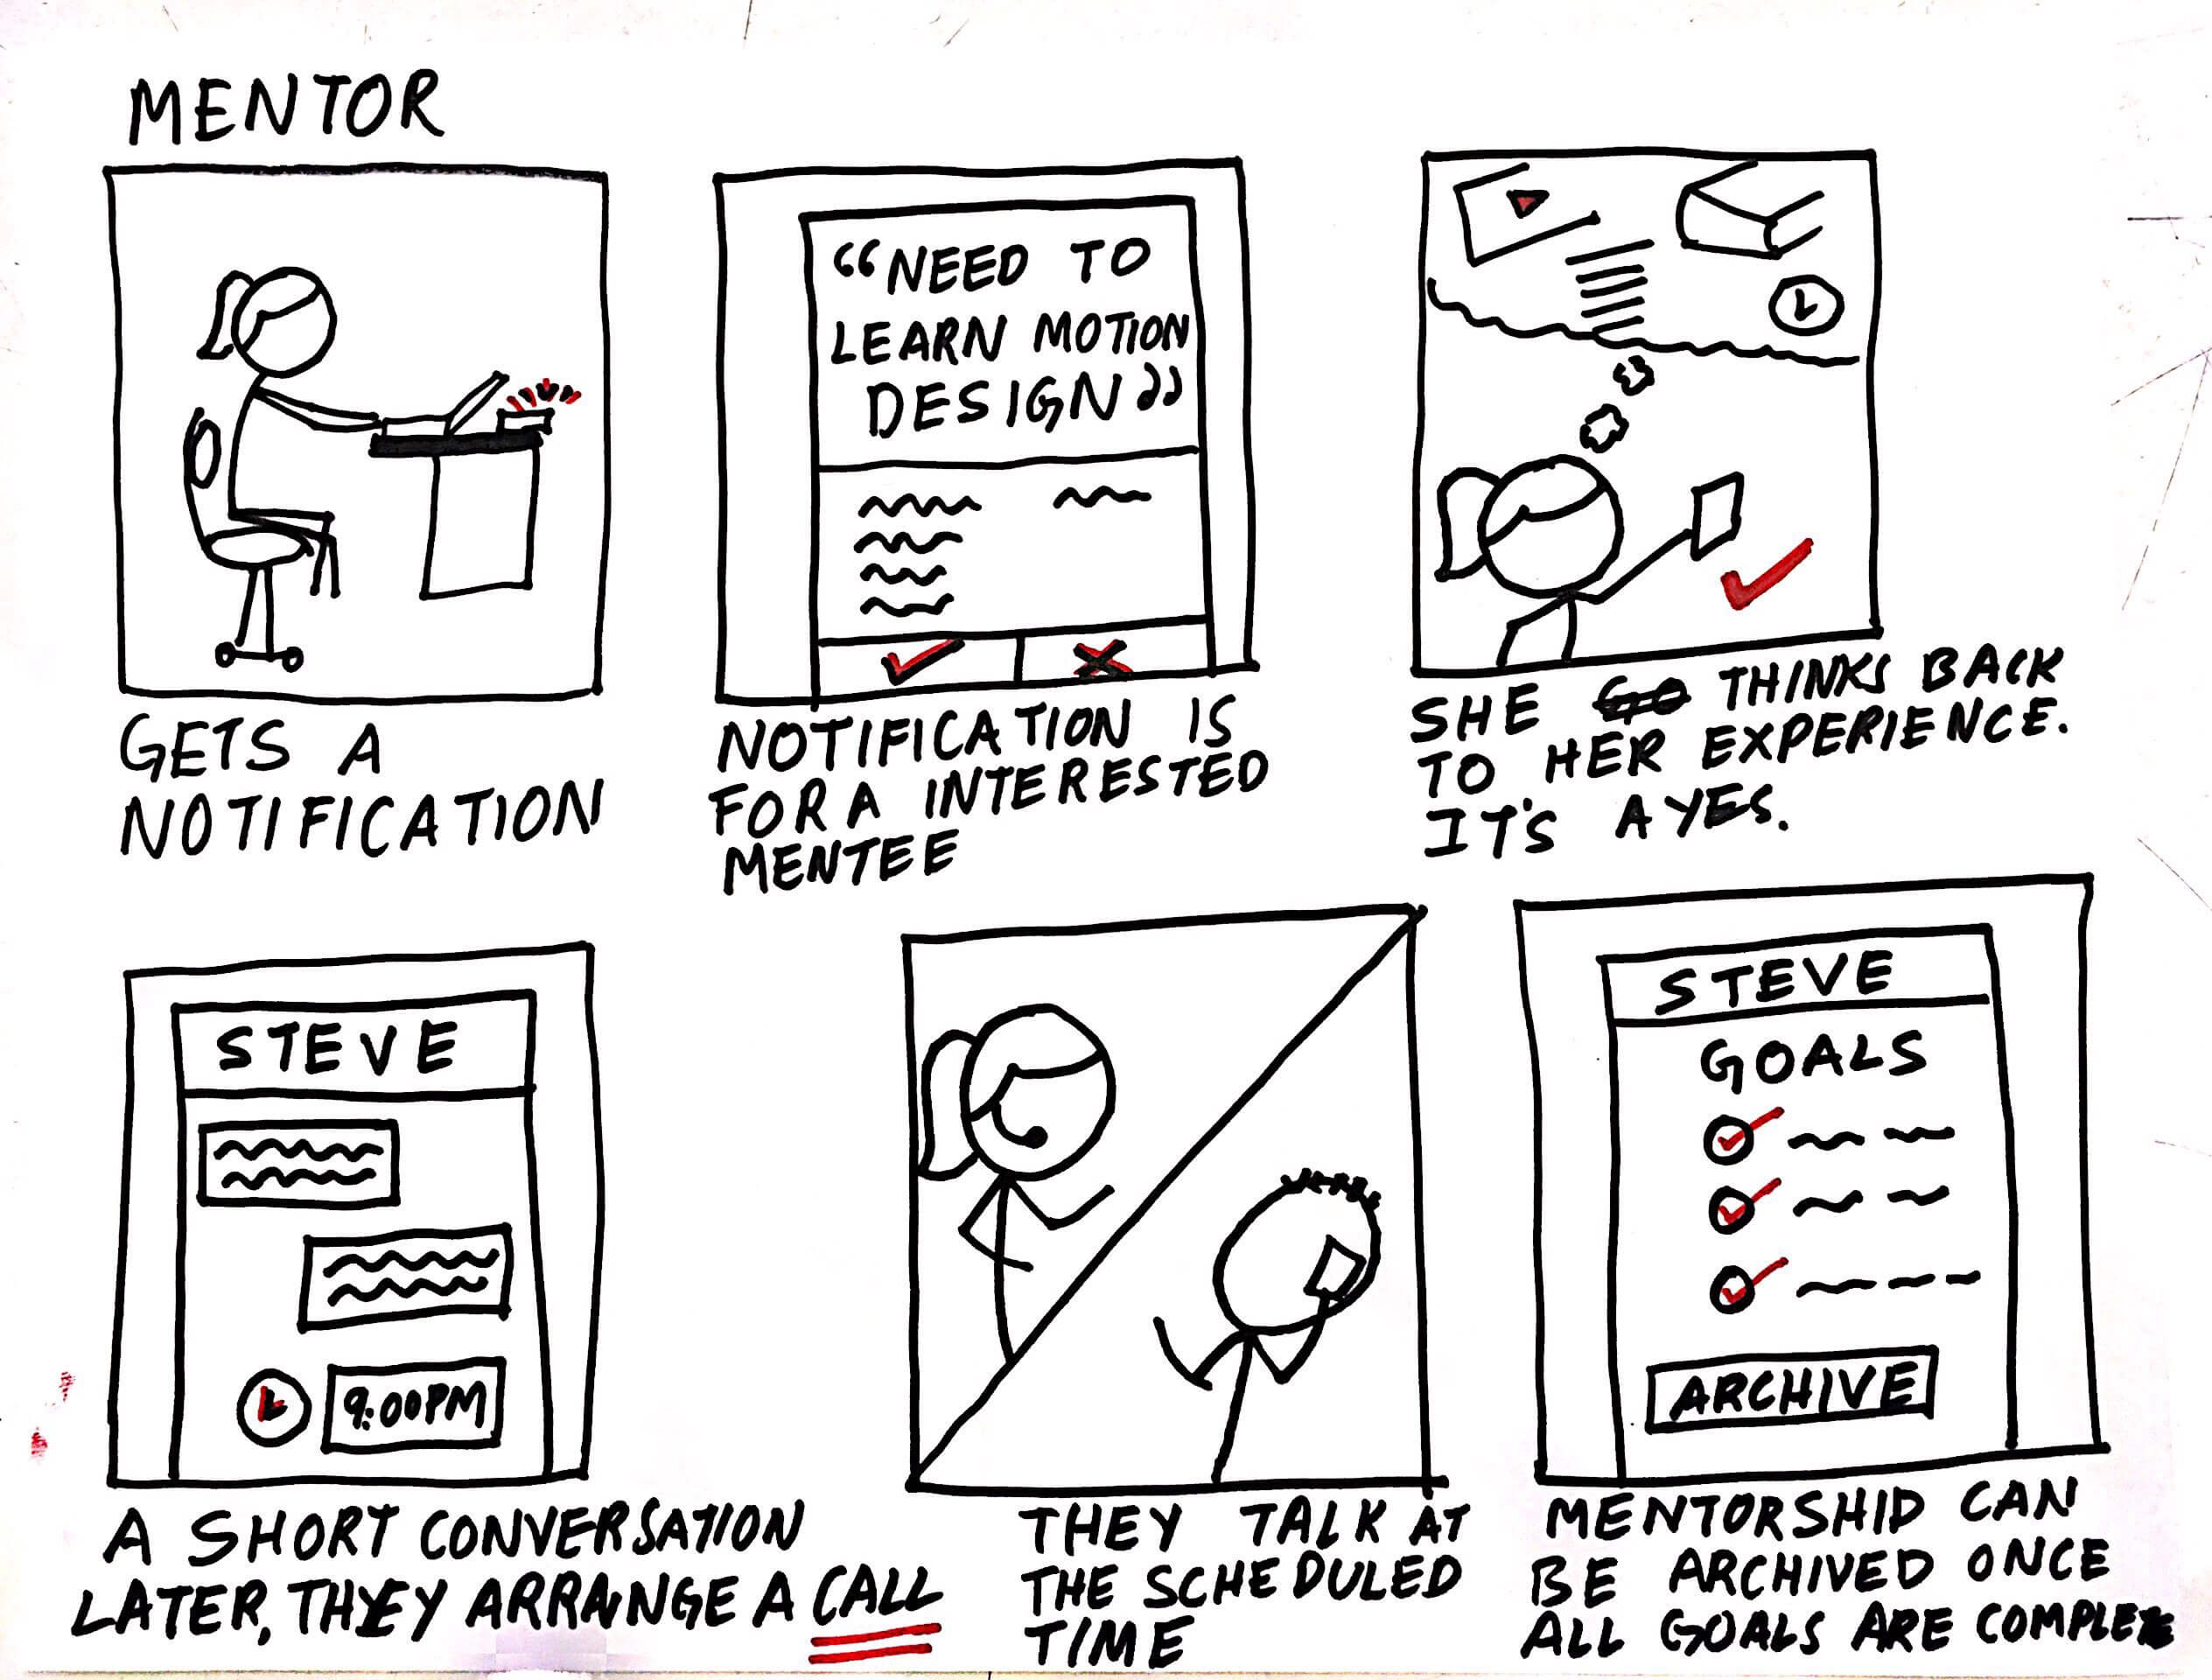 MENTOR
GETS A
NOTIFICATION
“NEED TO
LEARN MOTION
DESIGN”
NOTIFICATION IS
FOR A INTERESTED
MENTEE
SHE GO THINKS BACK
TO HER EXPERIENCE.
IT'S A YES.
STEVE
9:00PM
A SHORT CONVERSATION
LATER, THEY ARRANGE A CALL
THEY TALK AT
THE SCHEDULED
TIME
STEVE
GOALS
ARCHIVE
MENTORSHIP CAN
BE ARCHIVED ONCE
ALL GOALS ARE